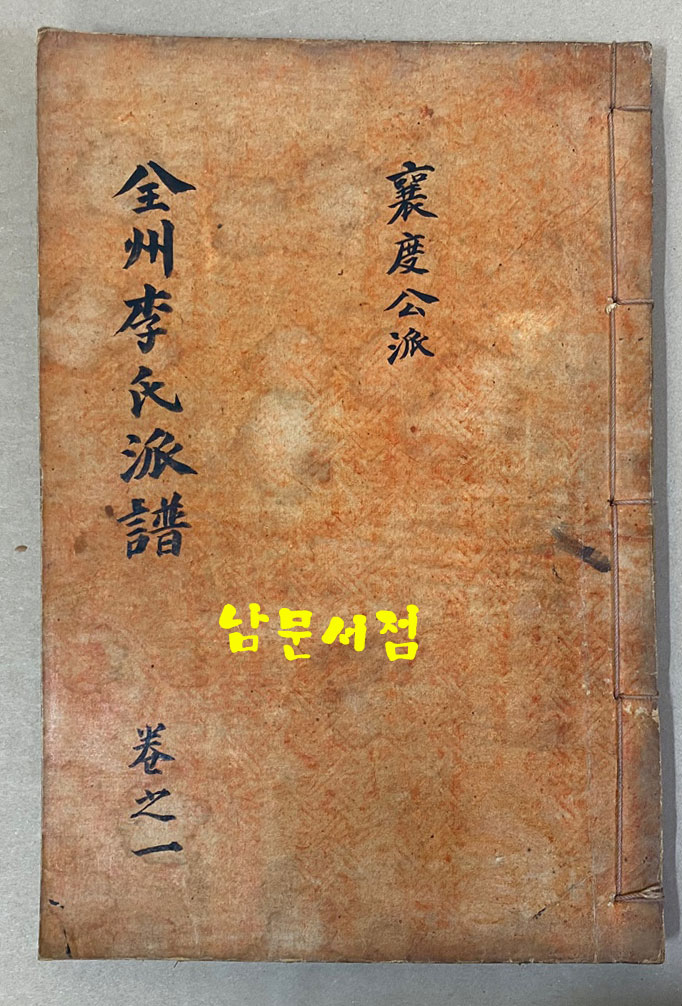 襄度公派
全州李氏派譜
卷之一
남문서점